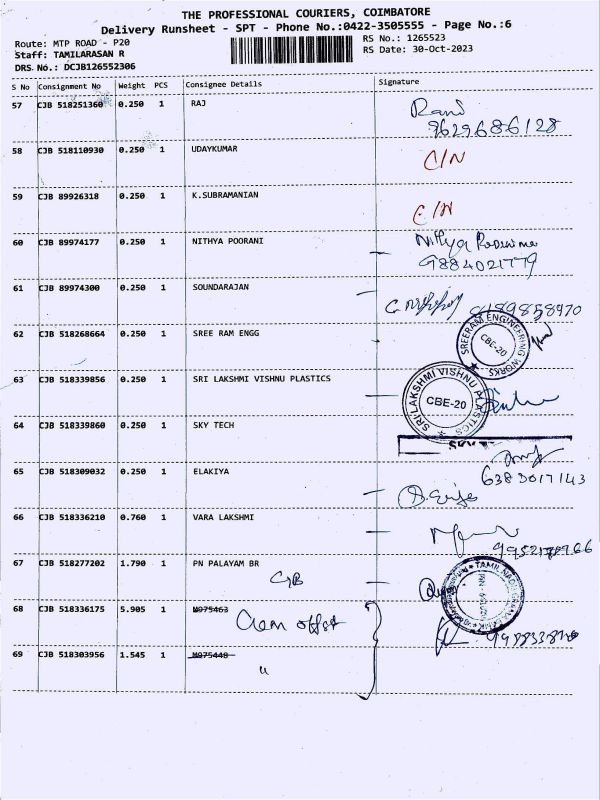 THE PROFESSIONAL COURIERS, COIMBATORE
Delivery Runsheet - SPT - Phone No.:0422-3505555 - Page No.:6
Route: MTP ROAD - P20
RS No.: 1265523
Staff: TAMILARASAN R
RS Date: 30-Oct-2023
DRS No.: DCJB126552306
S No Consignment No Weight PCS Consignee Details Signature
57 CJB 518251360 0.250 1 RAJ
9629686128
58 CJB 518110930 0.250 1 UDAYKUMAR C/N
59 CJB 89926318 0.250 1 K.SUBRAMANIAN C/N
60 CJB 89974177 0.250 1 NITHYA POORANI Nithya
9884021779
61 CJB 89974300 0.250 1 SOUNDARAJAN
62 CJB 518268664 0.250 1 SREE RAM ENGG
SREERAM ENGINEERING WORKS
CBE-20
63 CJB 518339856 0.250 1 SRI LAKSHMI VISHNU PLASTICS
SRI LAKSHMI VISHNU PLASTICS
CBE-20
64 CJB 518339860 0.250 1 SKY TECH
65 CJB 518309032 0.250 1 ELAKIYA
6383017143
66 CJB 518336210 0.760 1 VARA LAKSHMI
67 CJB 518277202 1.790 1 PN PALAYAM BR
68 CJB 518336175 5.905 1 M975463
69 CJB 518303956 1.545 1 M975448